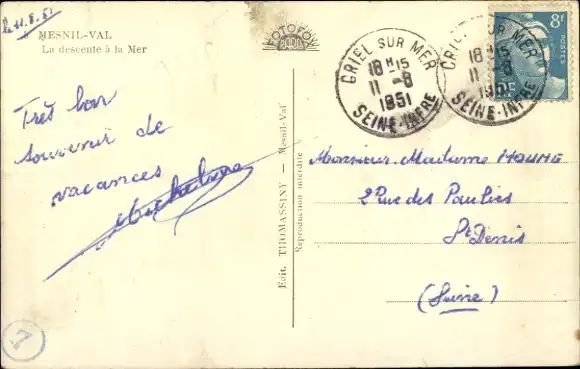 le 11.8.51
MESNIL-VAL
La descente à la Mer
FOTOFOX
Très bon
souvenir de
vacances
Edit. THOMASSINY — Mesnil-Val
Reproduction interdite
CRIEL SUR MER
18 H 15
11 -8
1951
SEINE-INFRE
CRIEL SUR MER
18 H 15
11 -8
1951
SEINE-INFRE
8F
POSTES
Monsieur Madame
2 Rue des
St Denis
(Seine)
7